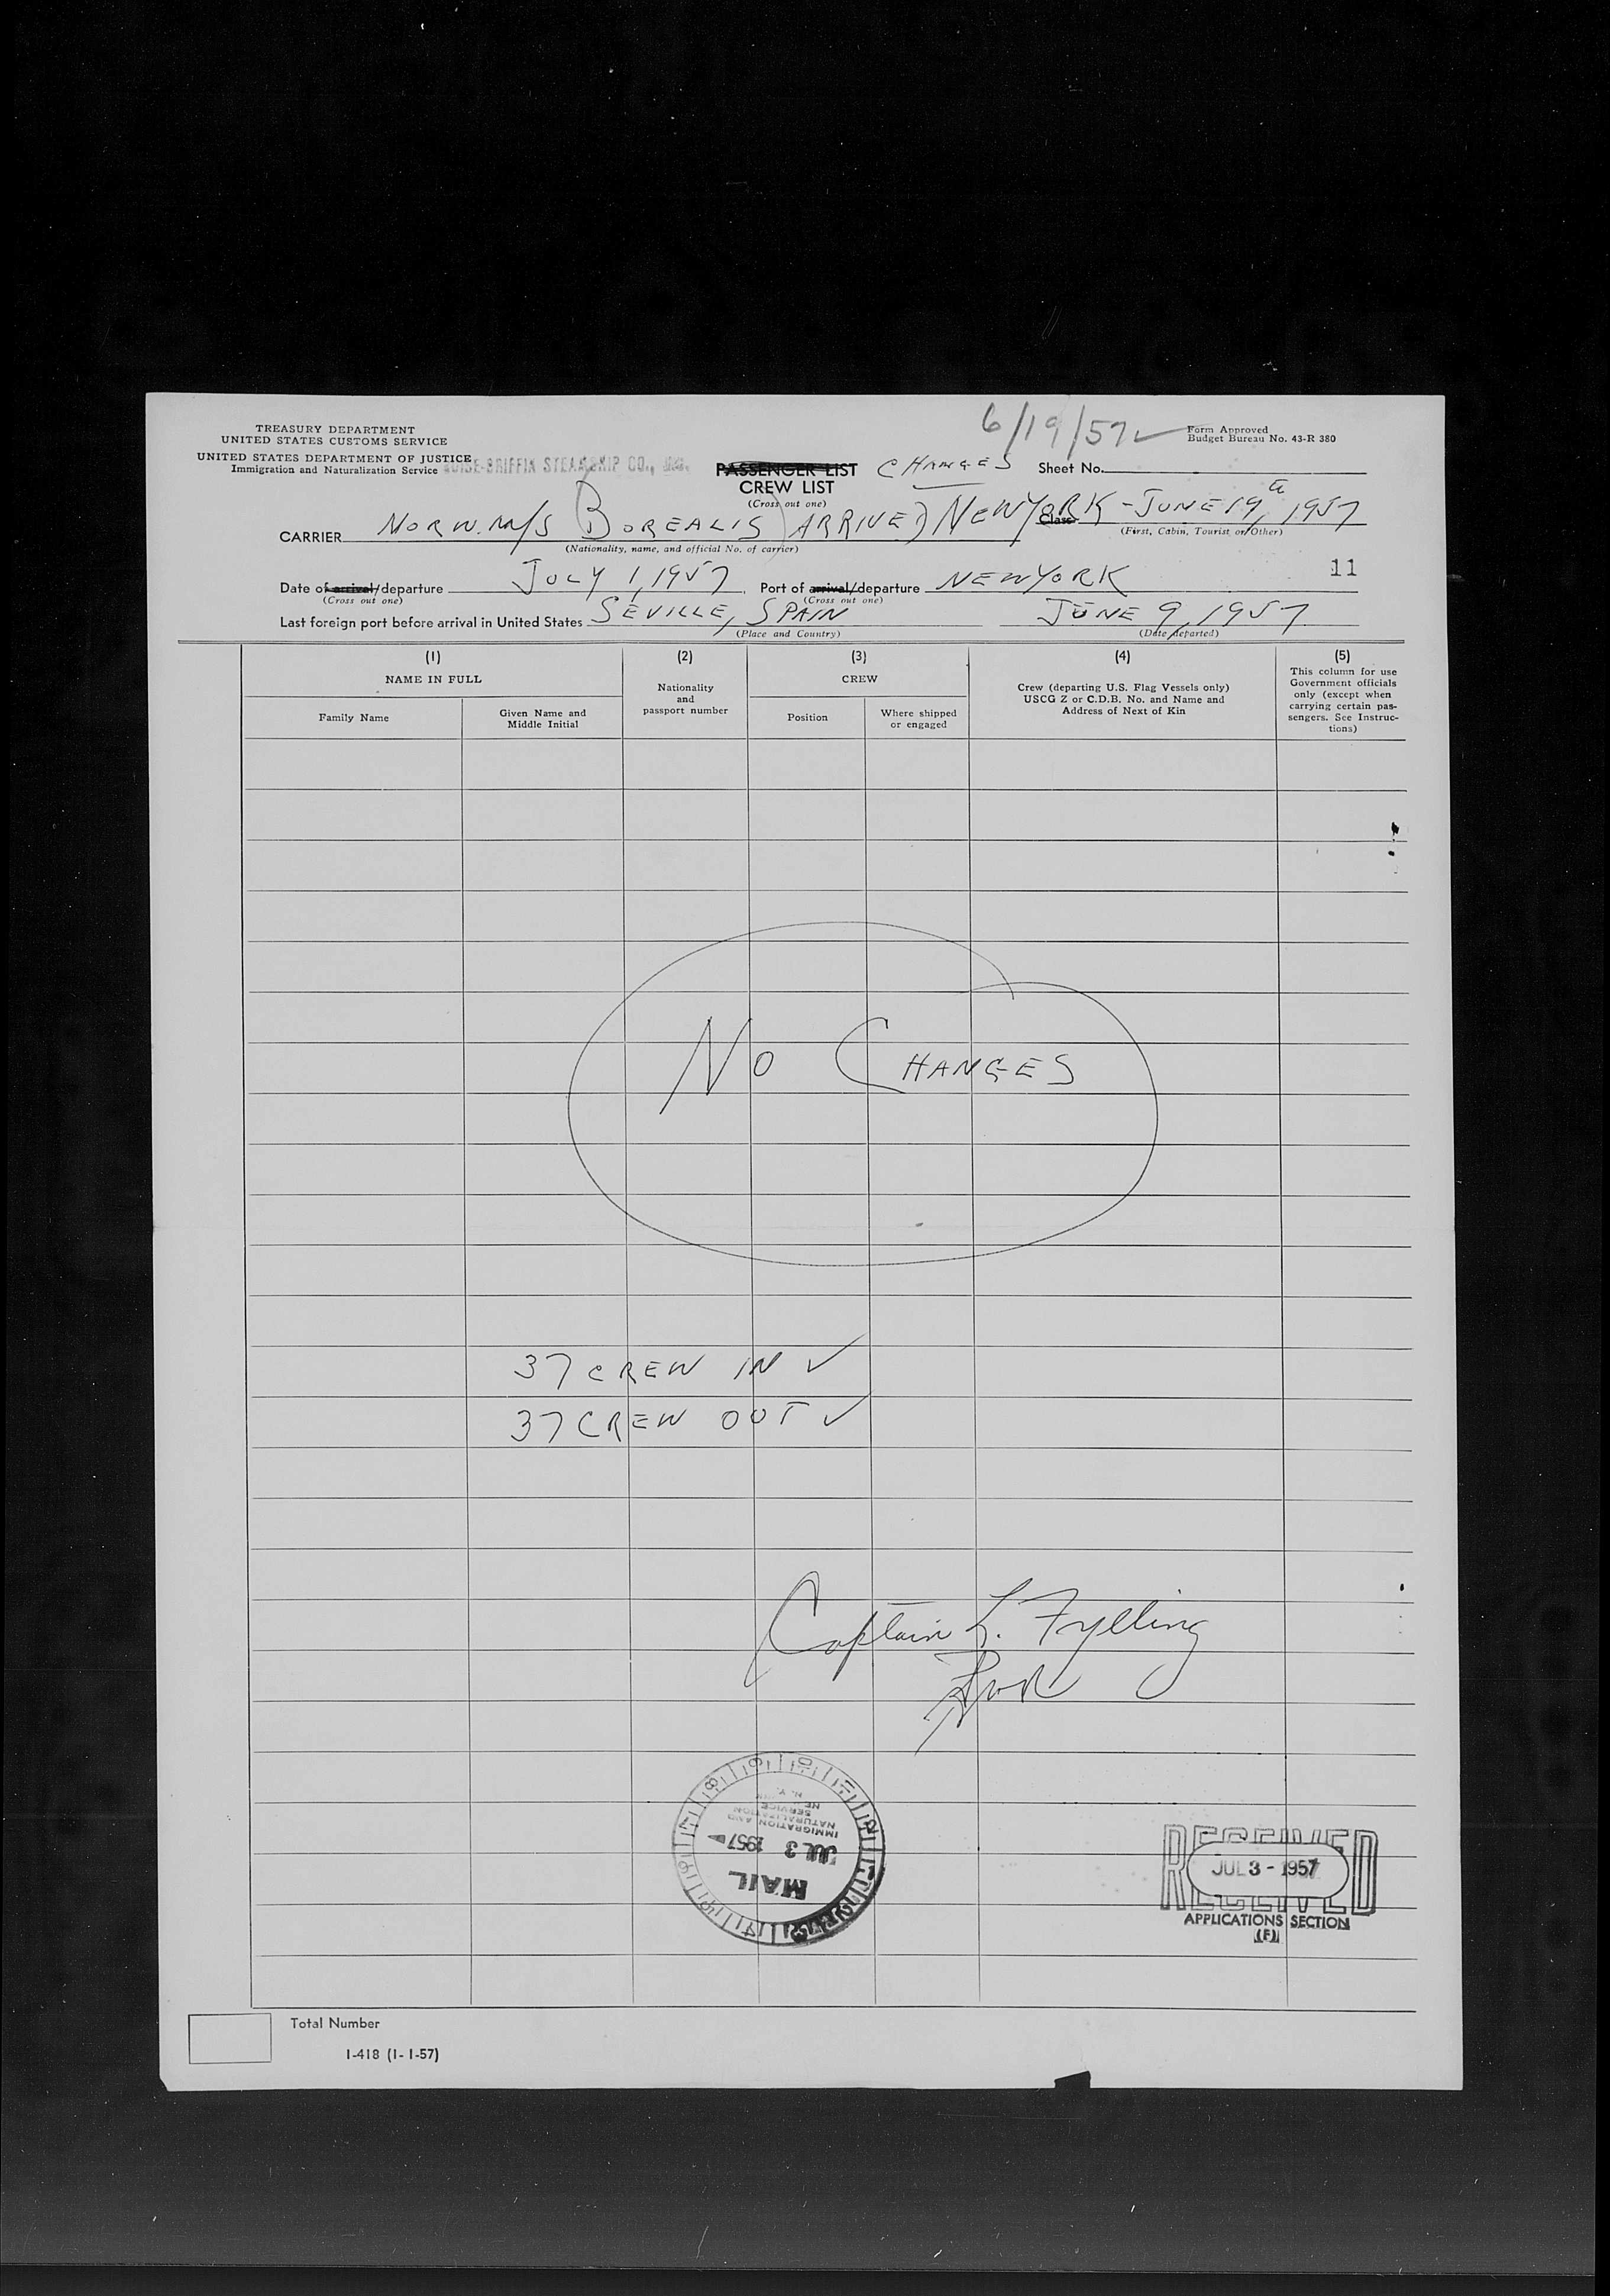 6/19/57 ✓
TREASURY DEPARTMENT
UNITED STATES CUSTOMS SERVICE
UNITED STATES DEPARTMENT OF JUSTICE
Immigration and Naturalization Service
GRIFFIN STEAMSHIP CO., INC.
Form Approved
Budget Bureau No. 43-R 380
PASSENGER LIST CHANGES
CREW LIST
(Cross out one)
Sheet No.
CARRIER NORW. M/S BOREALIS ARRIVED NEW YORK - JUNE 19th, 1957
Class
(Nationality, name, and official No. of carrier)
(First, Cabin, Tourist or Other)
11
Date of arrival/departure JULY 1, 1957 Port of arrival/departure NEW YORK
(Cross out one) (Cross out one)
Last foreign port before arrival in United States SEVILLE, SPAIN JUNE 9, 1957
(Place and Country) (Date departed)
(1) (2) (3) (4) (5)
NAME IN FULL
Family Name
Given Name and
Middle Initial
Nationality
and
passport number
CREW
Position
Where shipped
or engaged
Crew (departing U.S. Flag Vessels only)
USCG Z or C.D.B. No. and Name and
Address of Next of Kin
This column for use
Government officials
only (except when
carrying certain pas-
sengers. See Instruc-
tions)
NO CHANGES
37 CREW IN ✓
37 CREW OUT ✓
Captain L. Fylling
MAIL
JUL 3 1957
IMMIGRATION AND
NATURALIZATION
SERVICE
N. Y.
RECEIVED
JUL 3 - 1957
APPLICATIONS SECTION
(F)
Total Number
I-418 (1-1-57)